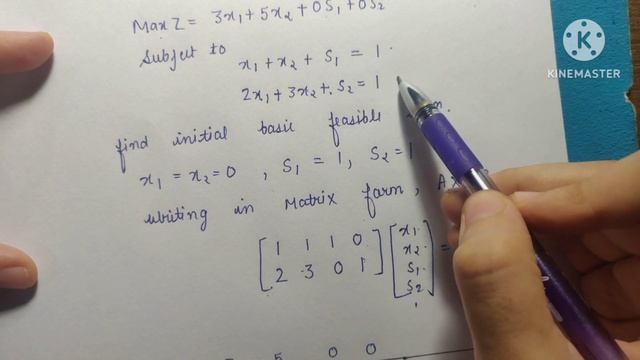 Max Z = 3x₁ + 5x₂ + 0S₁ + 0S₂
Subject to
x₁ + x₂ + S₁ = 1
2x₁ + 3x₂ + S₂ = 1
find initial basic feasible
x₁ = x₂ = 0 , S₁ = 1, S₂ = 1
writing in Matrix farm, AX
[1 1 1 0] [x₁] =
[2 3 0 1] [x₂]
[S₁]
[S₂]
5 0 0
KINEMASTER